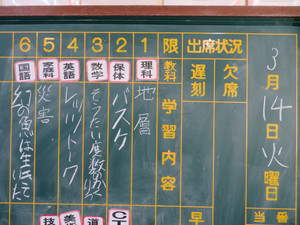 3月14日火曜日
当番
出席状況
欠席
遅刻
早
限 教科 学習内容
1 理科 地層
2 保体 バスケ
3 数学 そうたい度数
4 英語 レッツトーク
5 家庭科 災害
6 国語 幻の魚は生きていた
道
美
技